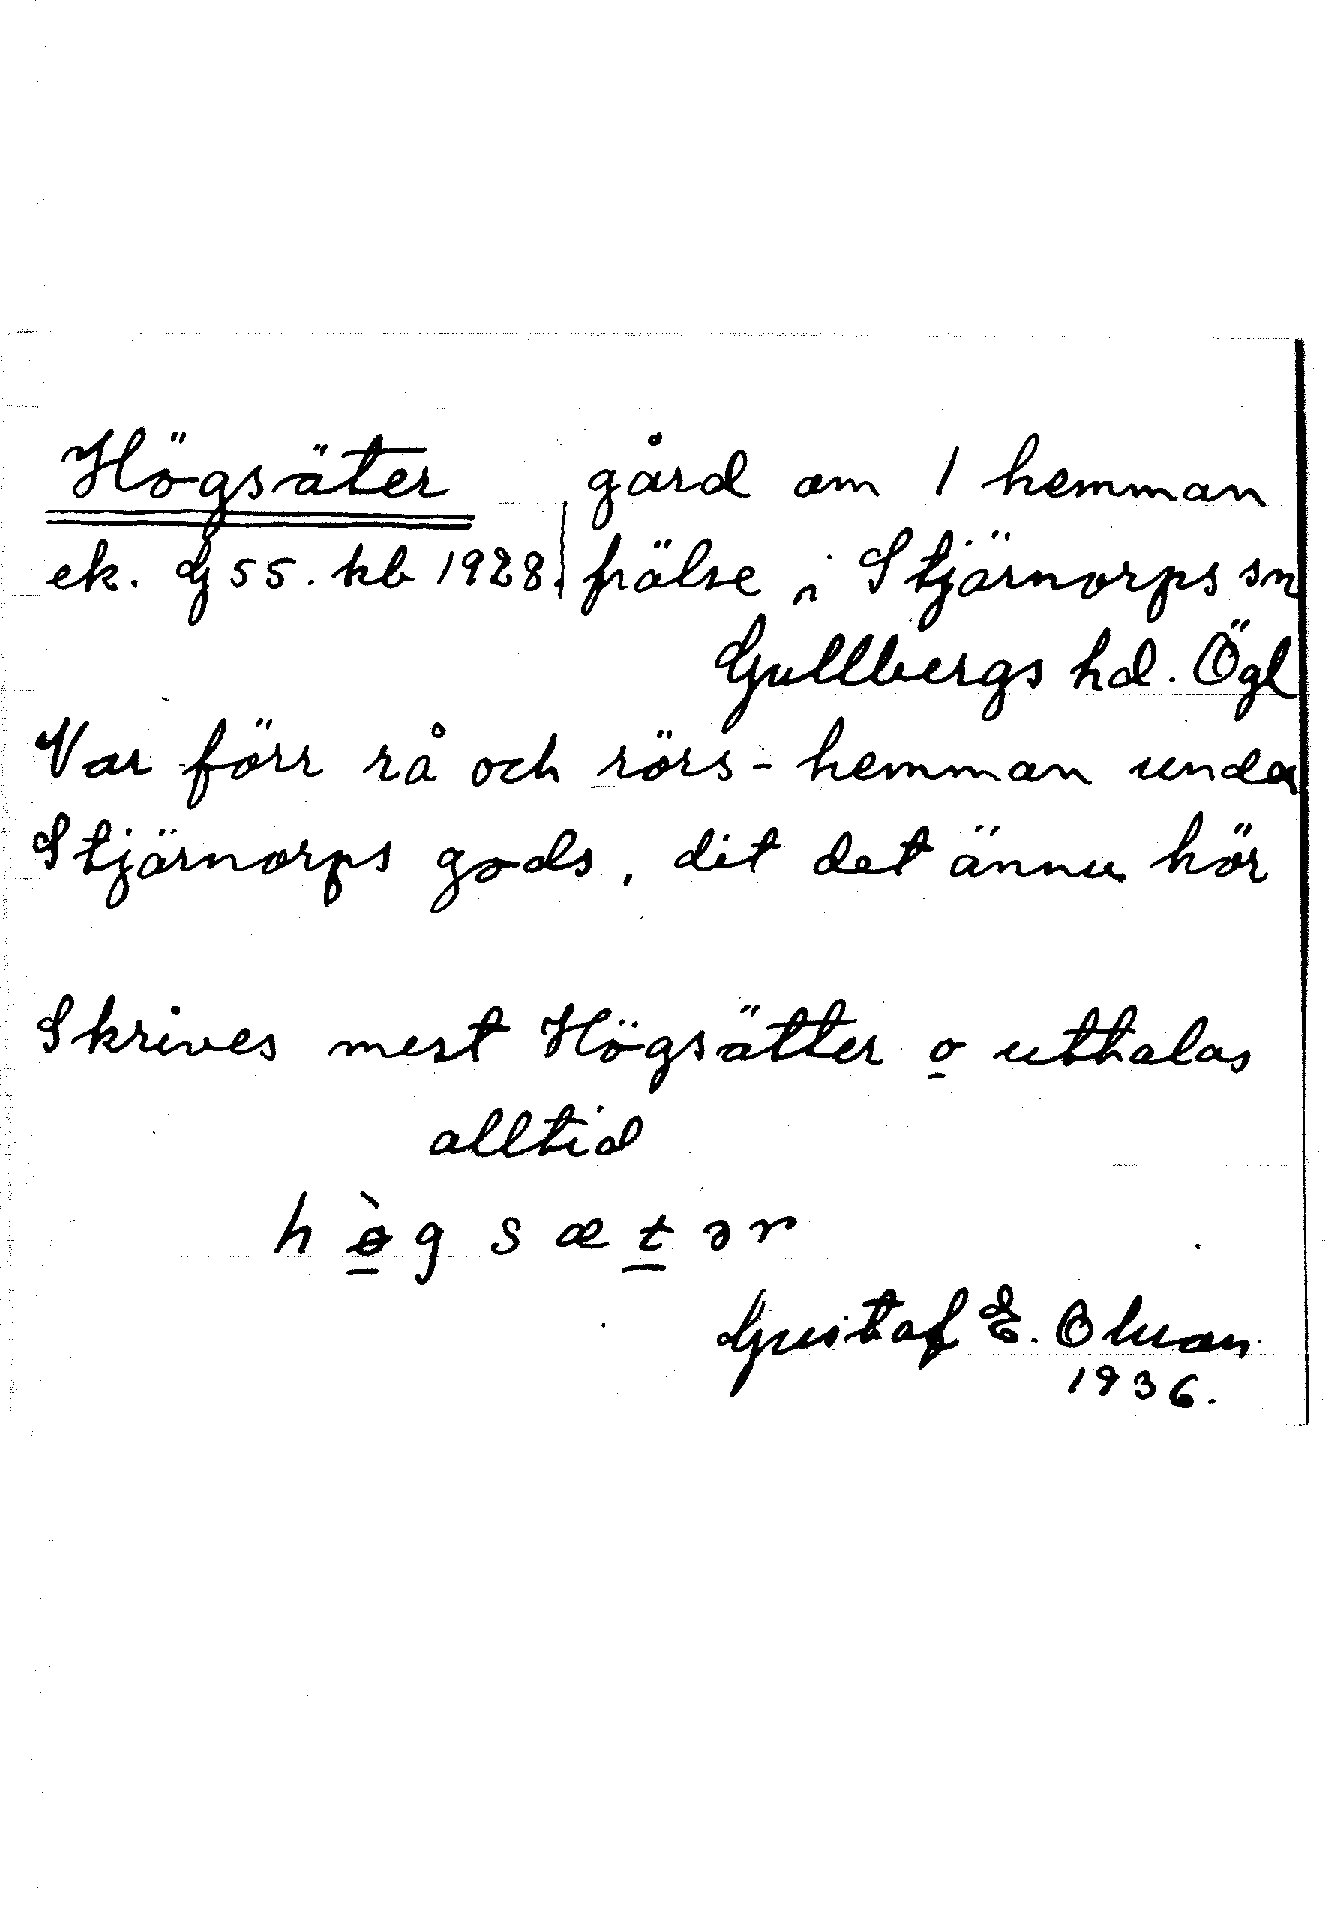 Högsäter gård om 1 hemman
ek. G 55. kb 1928. frälse i Stjärnorps sn
Gullbergs hd. Ögl
Var förr rå och rörs-hemman under
Stjärnorps gods, dit det ännu hör
Skrives mest Högsätter o uttalas
alltid
h ø̀ g s æ t ə r
Gustaf E.
1936.